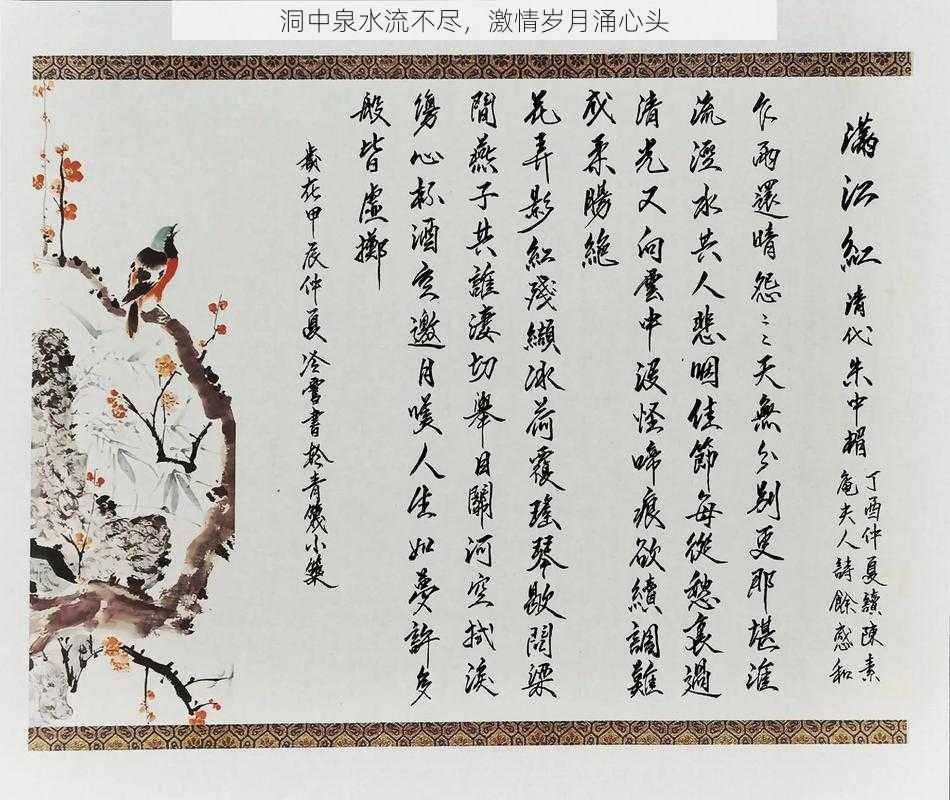 洞中泉水流不尽，激情岁月涌心头
满江红 清代朱中楣
丁酉仲夏讀陳素
庵夫人詩餘感和
乍雨還晴怨〻天無分别更那堪滙
流溼水共人悲咽佳節每從愁裏過
清光又向雲中没怪啼痕欲續調難
成柔腸絶
花弄影紅殘纈冰荷覆瑤琴歇問梁
間燕子共誰淒切舉目關河空拭淚
傷心杯酒空邀月嘆人生如夢許多
般皆虛擲
歲在甲辰仲夏冷雪書於青儀小築